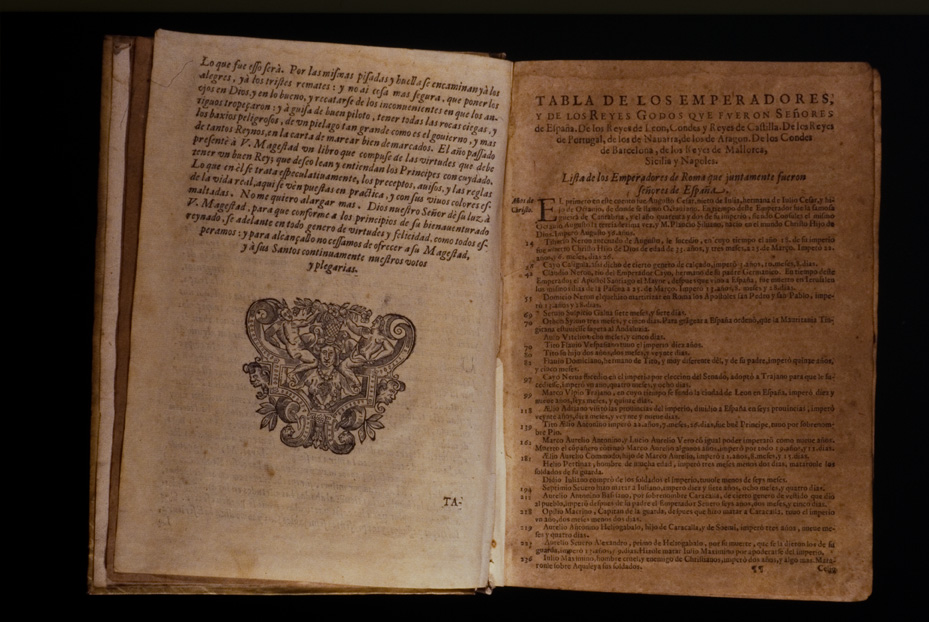 Lo que fue esso será. Por las mismas pisadas y huella se encaminan yà los
alegres, yà los tristes remates: y no ai cosa mas segura, que poner los
ojos en Dios, y en lo bueno, y recatarse de los inconuenientes en que los an-
tiguos tropeçaron; y à guisa de buen piloto, tener todas las rocas ciegas, y
los baxios peligrosos, de vn pielago tan grande como es el gouierno, y mas
de tantos Reynos, en la carta de marear bien demarcados. El año passado
presentè à V. Magestad vn libro que compuse de las virtudes que debe
tener vn buen Rey, que desseo lean y entiendan los Principes con cuydado.
Lo que en èl se trata especulatiuamente, los preceptos, auisos, y las reglas
de la vida real, aqui se vèn puestas en practica, y con sus viuos colores es-
maltadas. No me quiero alargar mas. Dios nuestro Señor dè su luz, à
V. Magestad, para que conforme à los principios de su bienauenturado
reynado, se adelante en todo genero de virtudes y felicidad, como todos es-
peramos; y para alcançallo no cessamos de ofrecer à su Magestad,
y à sus Santos continuamente nuestros votos
y plegarias.
TA-
TABLA DE LOS EMPERADORES,
Y DE LOS REYES GODOS QUE FUERON SEÑORES
de España. De los Reyes de Leon, Condes y Reyes de Castilla. De los Reyes
de Portugal, de los de Nauarra, de los de Aragon. De los Condes
de Barcelona, de los Reyes de Mallorca,
Sicilia y Napoles.
Lista de los Emperadores de Roma que juntamente fueron
señores de España.
Años de
Christo.
EL primero en este cuento fue Augusto Cesar, nieto de Iulia, hermana de Iulio Cesar, y hi-
jo de Octauio, de donde se llamò Octauiano. En tiempo deste Emperador fue la famosa
guerra de Cantabria, y el año quarenta y dos de su imperio, siendo Consules el mismo
Octauio Augusto la trezena vez, y M. Plancio Siluano, nacio en el mundo Christo Hijo de
Dios. Impero Augusto 56. años.
Tiberio Neron entenado de Augusto, le sucedio, en cuyo tiempo el año 18. de su imperio
fue muerto Christo Hijo de Dios de edad de 33. años, y tres meses, a 25 de Março. Imperò 22.
años, meses, dias 26.
Cayo Caligula, assi dicho de cierto genero de calçado, imperò 3. años, 10. meses, 8. dias.
Claudio Neron, tio del Emperador Cayo, hermano de su padre Germanico. En tiempo deste
Emperador el Apostol Santiago el Mayor, despues que vino a España, fue muerto en Ierusalen
los mismos dias de la Passion a 25. de Março. Imperò 13. años, 8. meses y 20. dias.
Domicio Neron el por cuyo martirizar en Roma los Apostoles san Pedro y san Pablo, impe-
rò 13. años y 28. dias.
69 Seruio Sulpicio Galba siete meses, y siete dias.
70 Othon Syluio tres meses, y cinco dias. Para grangear a España ordenò, que la Mauritania Tin-
gitana estuuiesse sugeta al Andaluzia.
Aulo Vitelio ocho meses, y cinco dias.
Tito Flauio Vespasiano tuuo el imperio diez años.
80 Tito su hijo dos años, dos meses, y veynte dias.
82 Flauio Domiciano, hermano de Tito, y muy diferente dèl, y de su padre, imperò quinze años,
y cinco meses.
97 Cayo Nerua sucedio en el imperio por eleccion del Senado, adoptò a Trajano para que le su-
cediesse, imperò vn año, quatro meses, y nueue dias.
99 Marco Vlpio Trajano, en cuyo tiempo se fundò la ciudad de Leon en España, imperò diez y
nueue años, seys meses, y quinze dias.
118 Ælio Adriano visitò las prouincias del imperio, diuidio a España en seys prouincias, imperò
veynte años, diez meses, y veynte y nueue dias.
139 Tito Ælio Antonino imperò 22. años, 7. meses, 26. dias, fue buẽ Principe, tuuo por sobrenom-
bre Pio.
162 Marco Aurelio Antonino, y Lucio Aurelio Vero cõ igual poder imperaron como nueue años.
Muerto el compañero continuò Marco Aurelio algunos años, imperò por todo 19. años, y 11. dias.
181 Ælio Aurelio Comodo, hijo de Marco Aurelio, imperò 12. años, 8. meses, y 15. dias.
Helio Pertinax, hombre de mucha edad, imperò tres meses menos dos dias, mataronle los
soldados de su guarda.
Didio Iuliano comprò de los soldados el imperio, tuuole menos de seys meses.
194 Septimio Seuero hizo matar à Iuliano, imperò diez y siete años, ocho meses, y quatro dias.
211 Aurelio Antonino Bassiano, por sobrenombre Caracalla, de cierto genero de vestido que diò
al pueblo, imperò despues de su padre el Emperador Seuero seys años, dos meses, y cinco dias.
218 Opilio Macrino, Capitan de la guarda, despues que hizo matar a Caracalla, tuuo el imperio
vn año, dos meses menos dos dias.
219 Aurelio Antonino Heliogabalo, hijo de Caracalla, y de Soemi, imperò tres años, nueue me-
ses y quatro dias.
223 Aurelio Seuero Alexandro, primo de Heliogabalo, por su muerte, que se la dieron los de su
guarda, imperò 13. años, y 9. dias. Hizole matar Iulio Maximino por apoderarse del imperio.
236 Iulio Maximino, hombre cruel, y enemigo de Christianos, imperò dos años, y algo mas. Mata-
ronle sobre Aquileya sus soldados.
¶¶ Cayo